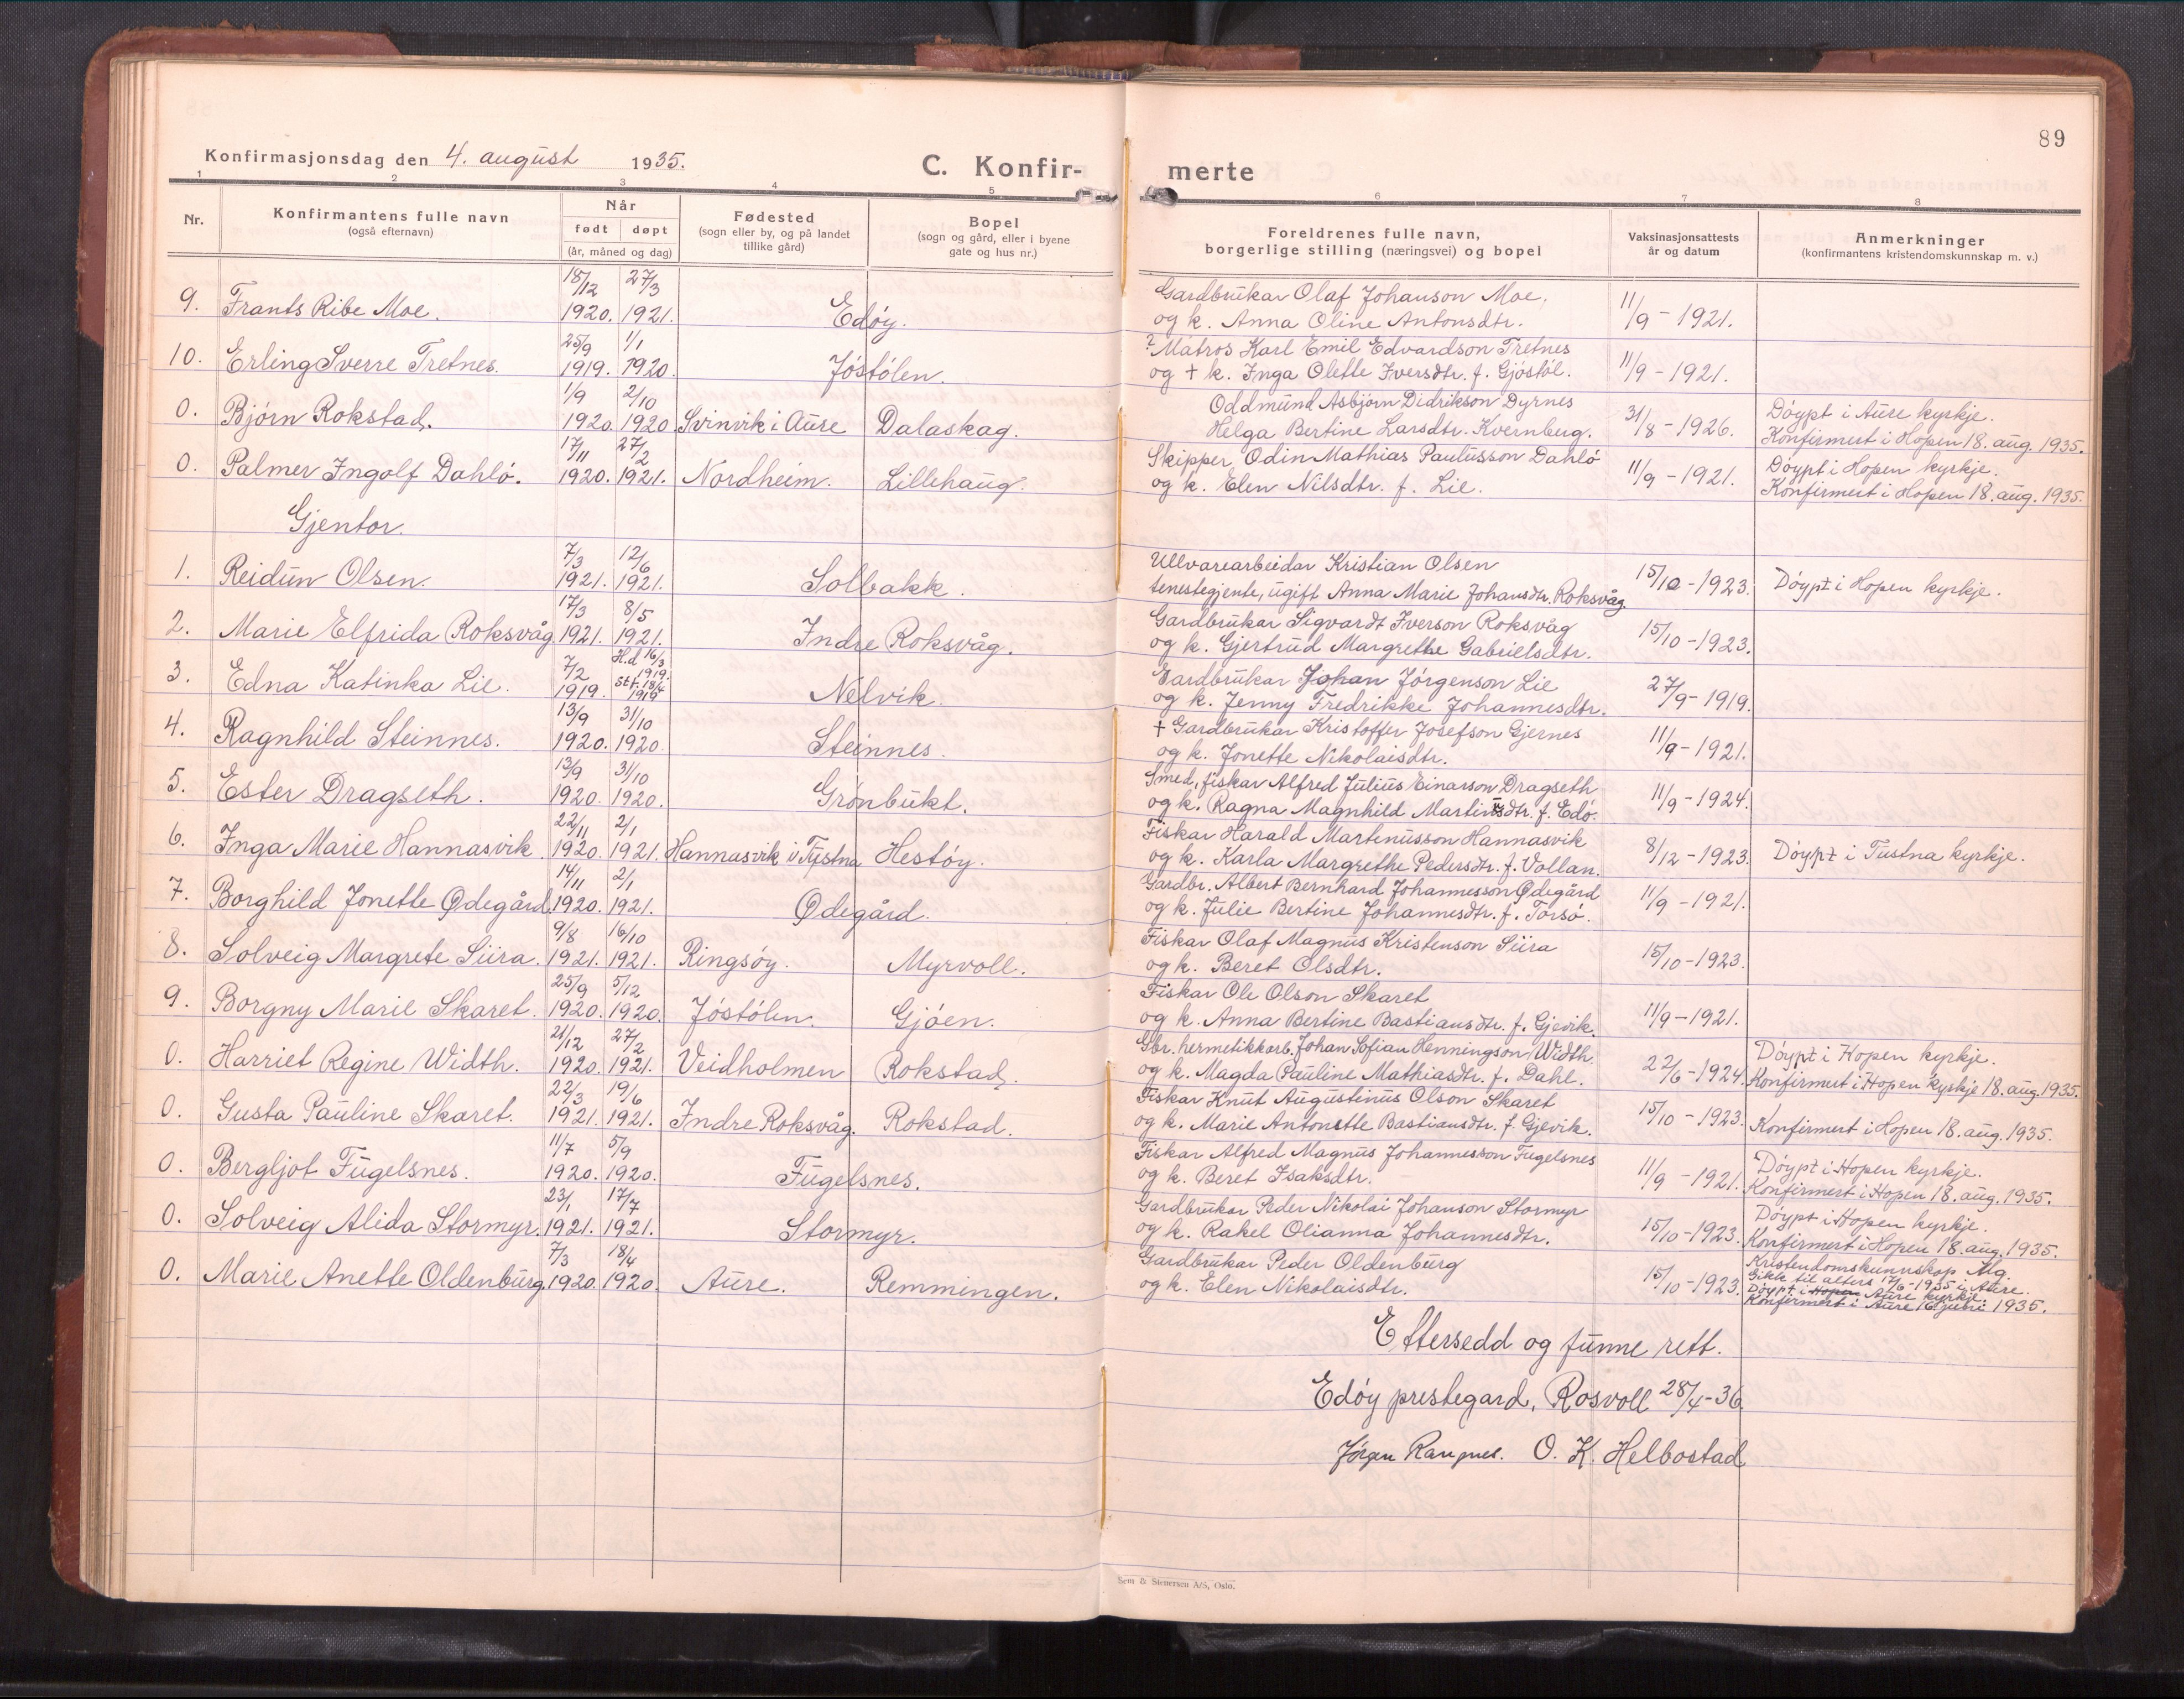 89
Konfirmasjonsdag den 4. august 1935.
C. Konfir-
merte
1 2 3 4 5 6 7 8
Nr. Konfirmantens fulle navn (også efternavn) Når født døpt (år, måned og dag) Fødested (sogn eller by, og på landet tillike gård) Bopel (sogn og gård, eller i byene gate og hus nr.) Foreldrenes fulle navn, borgerlige stilling (næringsvei) og bopel Vaksinasjonsattests år og datum Anmerkninger (konfirmantens kristendomskunnskap m. v.)
9. Frants Ribe Moe. 18/12 1920. 27/3 1921. Edøy. Gardbrukar Olaf Johanson Moe, og k. Anna Oline Antonsdtr. 11/9 - 1921.
10. Erling Sverre Tretnes. 25/9 1919. 1/1 1920. Jøstølen. ? Matros Karl Emil Edvardson Tretnes og + k. Inga Olette Iversdtr. f. Gjøstøl. 11/9 - 1921.
0. Bjørn Rokstad. 1/9 1920. 2/10 1920. Svinvik i Aure Dalaskag. Oddmund Asbjørn Didrikson Dyrnes Helga Bertine Larsdtr. Kvernberg. 31/8 - 1926. Døypt i Aure kyrkje. Konfirmert i Hopen 18. aug. 1935.
0. Palmer Ingolf Dahlø. 17/11 1920. 27/2 1921. Nordheim. Lillehaug. Skipper Odin Mathias Paulusson Dahlø og k. Elen Nilsdtr. f. Lie. 11/9 - 1921. Døypt i Hopen kyrkje. Konfirmert i Hopen 18. aug. 1935.
Gjentor.
1. Reidun Olsen. 7/3 1921. 12/6 1921. Solbakk. Ullvarearbeidar Kristian Olsen tenestegjente, ugift Anna Marie Johansdtr. Roksvåg. 15/10 - 1923. Døypt i Hopen kyrkje.
2. Marie Elfrida Roksvåg 17/3 1921. 8/5 1921. Indre Roksvåg. Gardbrukar Sigvardt Iverson Roksvåg og k. Gjertrud Margrethe Gabrielsdtr. 15/10 - 1923.
3. Edna Katinka Lie. 7/2 1919. H.d 16/3 1919. St.f. 18/4 1919 Nelvik. Gardbrukar Johan Jørgenson Lie og k. Jenny Fredrikke Johannesdtr. 27/9 - 1919.
4. Ragnhild Steinnes. 13/9 1920. 31/10 1920. Steinnes. + Gardbrukar Kristoffer Josefson Gjernes og k. Jonette Nikolaisdtr. 11/9 - 1921.
5. Ester Dragseth. 13/9 1920. 31/10 1920. Grønbukt. Smed, fiskar Alfred Julius Einarson Dragseth og k. Ragna Magnhild Martinsdtr. f. Edø. 11/9 - 1924.
6. Inga Marie Hannasvik. 22/11 1920. 2/1 1921. Hannasvik i Tustna Hestøy. Fiskar Harald Martinusson Hannasvik og k. Karla Margrethe Pedersdtr. f. Vollan. 8/12 - 1923. Døypt i Tustna kyrkje.
7. Borghild Jonette Ødegård. 14/11 1920. 2/1 1921. Ødegård. Gardbr. Albert Bernhard Johannesson Ødegård og k. Julie Bertine Johannesdtr. f. Torsø. 11/9 - 1921.
8. Solveig Margrete Siira. 9/8 1921. 16/10 1921. Ringsøy. Myrvoll. Fiskar Olaf Magnus Kristenson Siira og k. Beret Olsdtr. 15/10 - 1923.
9. Borgny Marie Skaret. 25/9 1920. 5/12 1920. Jøstølen. Gjøen. Fiskar Ole Olson Skaret og k. Anna Bertine Bastiansdtr. f. Gjevik. 11/9 - 1921.
0. Harriet Regine Width. 21/12 1920. 27/2 1921. Veidholmen Rokstad. Gbr. hermetikkarb. Johan Sofian Henningson Width og k. Magda Pauline Mathiasdtr. f. Dahl. 22/6 - 1924. Døypt i Hopen kyrkje. Konfirmert i Hopen kyrkje 18. aug. 1935.
0. Gusta Pauline Skaret. 22/3 1921. 19/6 1921. Indre Roksvåg. Rokstad. Fiskar Knut Augustinus Olson Skaret og k. Marie Antonette Bastiansdtr. f. Gjevik. 15/10 - 1923. Konfirmert i Hopen 18. aug. 1935.
0. Bergljot Fugelsnes. 11/7 1920. 5/9 1920. Fugelsnes. Fiskar Alfred Magnus Johannesson Fugelsnes og k. Beret Isaksdtr. 11/9 - 1921. Døypt i Hopen kyrkje. Konfirmert i Hopen 18. aug. 1935.
0. Solveig Alida Stormyr. 23/1 1921. 17/7 1921. Stormyr. Gardbrukar Peder Nikolai Johanson Stormyr og k. Rakel Olianna Johannesdtr. 15/10 - 1923. Døypt i Hopen kyrkje. Konfirmert i Hopen 18. aug. 1935.
0. Marie Anette Oldenburg. 7/3 1920. 18/4 1920. Aure. Remmingen. Gardbrukar Peder Oldenburg og k. Elen Nikolaisdtr. 15/10 - 1923. Kristendomskunnskap Mg. Gikk til alters 17/6 - 1935 i Aure. Døypt i Hopen Aure kyrkje. Konfirmert i Aure 16. juni 1935.
Ettersedd og funne rett.
Edøy prestegard, Rosvoll 28/4 - 36
Jørgen O. K. Helbostad
Sem & Stenersen A/S, Oslo.